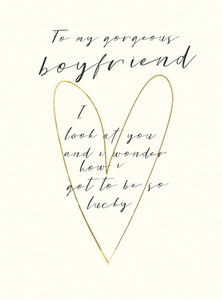 To my gorgeous
boyfriend
I
look at you
and i wonder
how i
got to be so
lucky